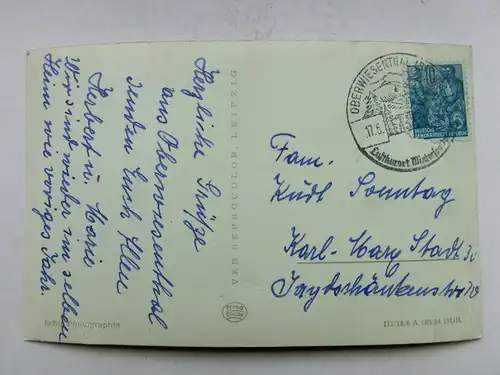 Herzliche Grüße
aus Oberwiesenthal
senden Euch Allen
Herbert u. Marie
Wir sind wieder im selben
Heim wie voriges Jahr.
Echte Photographie
VEB REPROCOLOR, LEIPZIG
OBERWIESENTHAL
17.5.
Luftkurort Wintersport
10
5
DEUTSCHE
DEMOKRATISCHE REPUBLIK
Fam.
Kurt Sonntag
Karl-Marx Stadt
Jagdschänkenstr
III/18/6 A DDR